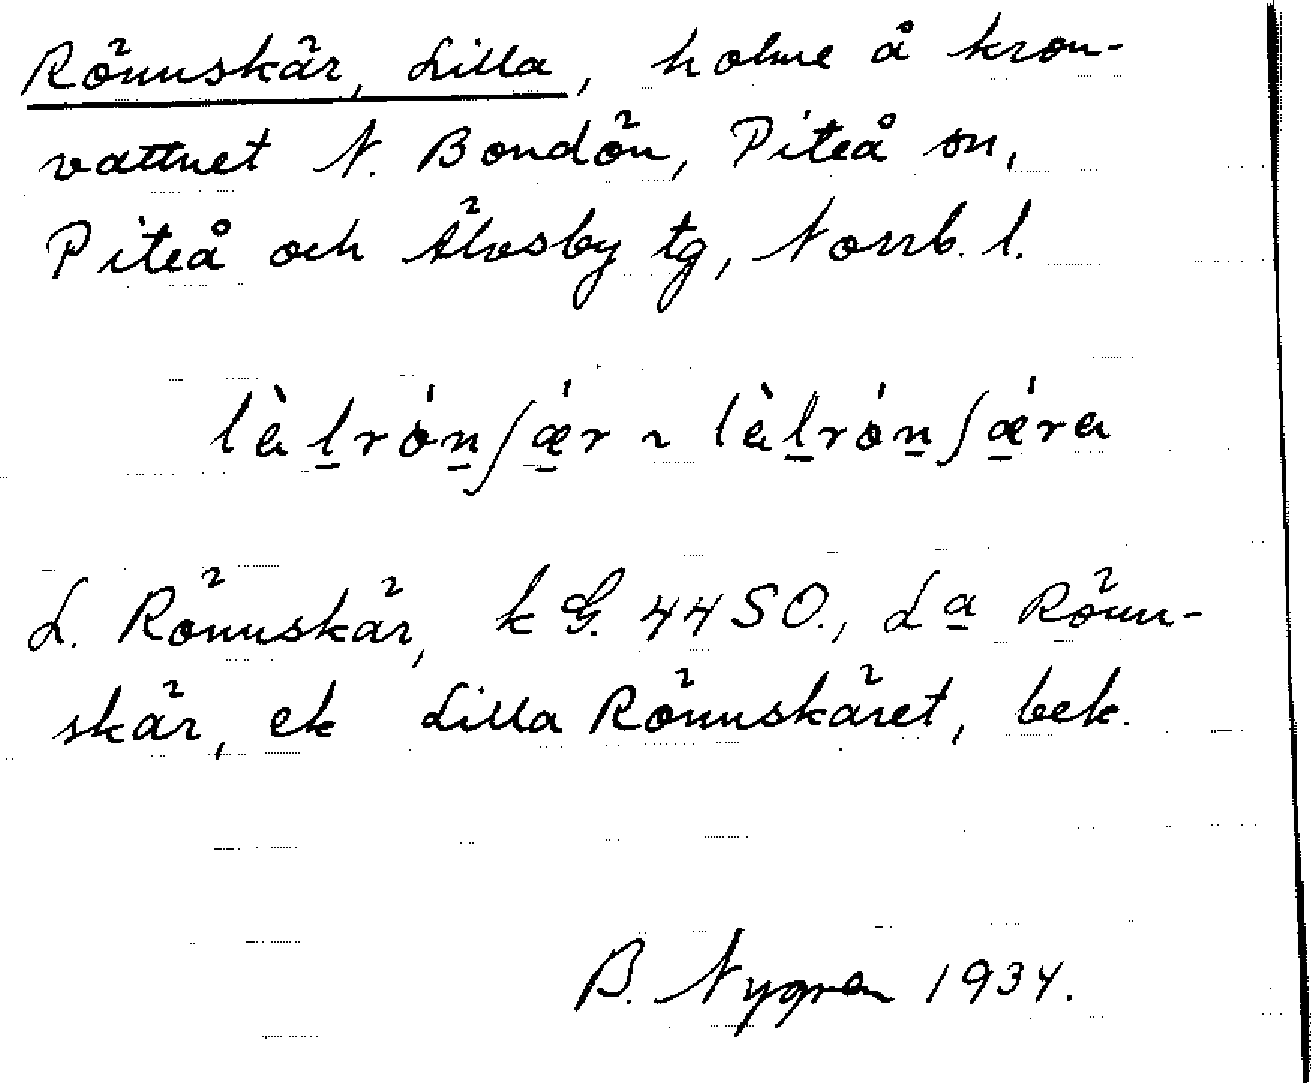 Rönnskär, Lilla, holme å kron-
vattnet N. Bondön, Piteå sn,
Piteå och Älvsby tg, Norrb. l.
L. Rönnskär, k G. 44 SO., L<u>a</u> Rönn-
skär, ek Lilla Rönnskäret, bek.
B. Nygren 1934.